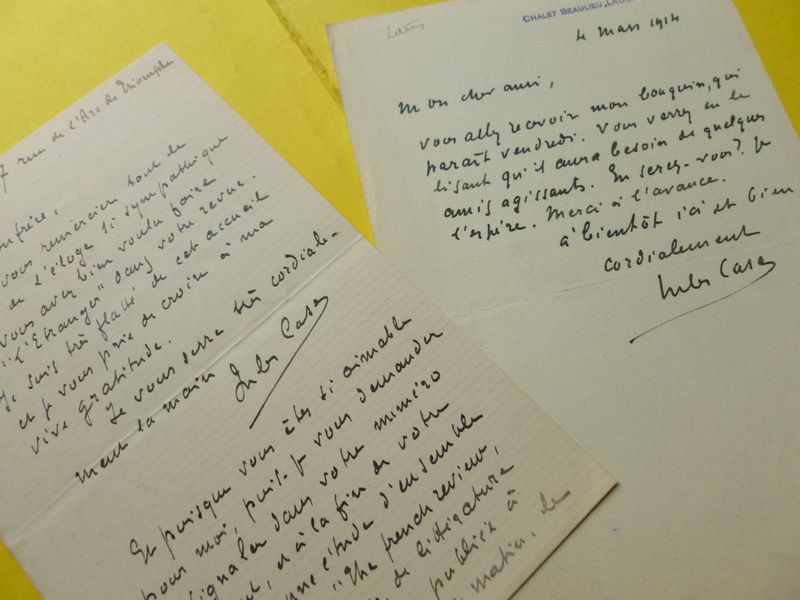 7 rue de l'Arc de Triomphe
vous remercier tout de
de l'éloge si sympathique
vous avez bien voulu faire
"L'Etranger" dans votre revue.
Je suis très flatté de cet accueil
et je vous prie de croire à ma
vive gratitude.
Je vous serre très cordiale-
ment la main
Jules Case
Et puisque vous êtes si aimable
pour moi, puis-je vous demander
signaler dans votre numéro
à la fin de votre
une étude d'ensemble
"The french review,
de littérature
publiée à
matin, de
Lettres
CHALET BEAULIEU,
4 mars 1914
Mon cher ami,
Vous allez recevoir mon bouquin, qui
paraît vendredi. Vous verrez en le
lisant qu'il aura besoin de quelques
amis agissants. En serez-vous? Je
l'espère. Merci à l'avance.
à bientôt ici et bien
cordialement
Jules Case